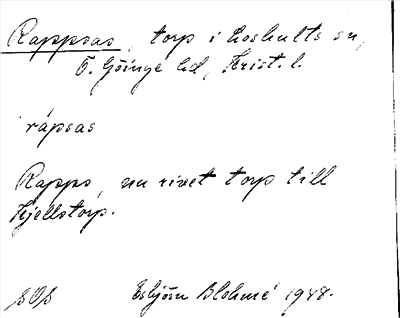 Rappsas, torp i Loshults sn,
Ö. Göinge hd, Krist. l.
rápsas
Rapps, nu rivet torp till
Kjellstorp.
Esbjörn Blohmé 1948.